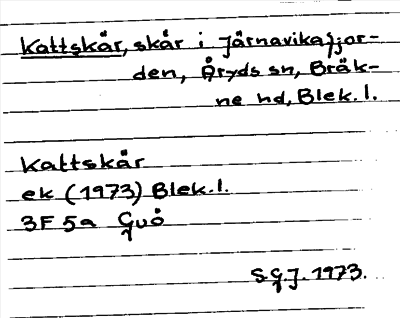 Kattskär, skär i Järnavikafjor-
den, Åryds sn, Bräk-
ne hd, Blek. l.
Kattskär
ek (1973) Blek. l.
3F 5a Guö
S.G.J. 1973.